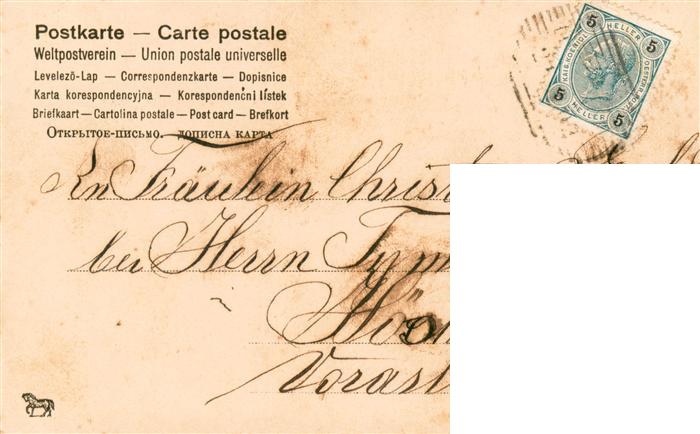 Postkarte — Carte postale
Weltpostverein — Union postale universelle
Levelező-Lap — Correspondenzkarte — Dopisnice
Karta korespondencyjna — Korespondenčni lístek
Briefkaart — Cartolina postale — Post card — Brefkort
Открытое-письмо. — дописна карта
5 5
KAIS. KOENIGL. OESTERR. POST
HELLER HELLER
5 5
An Fräulein Christ
bei Herrn
Vorarl